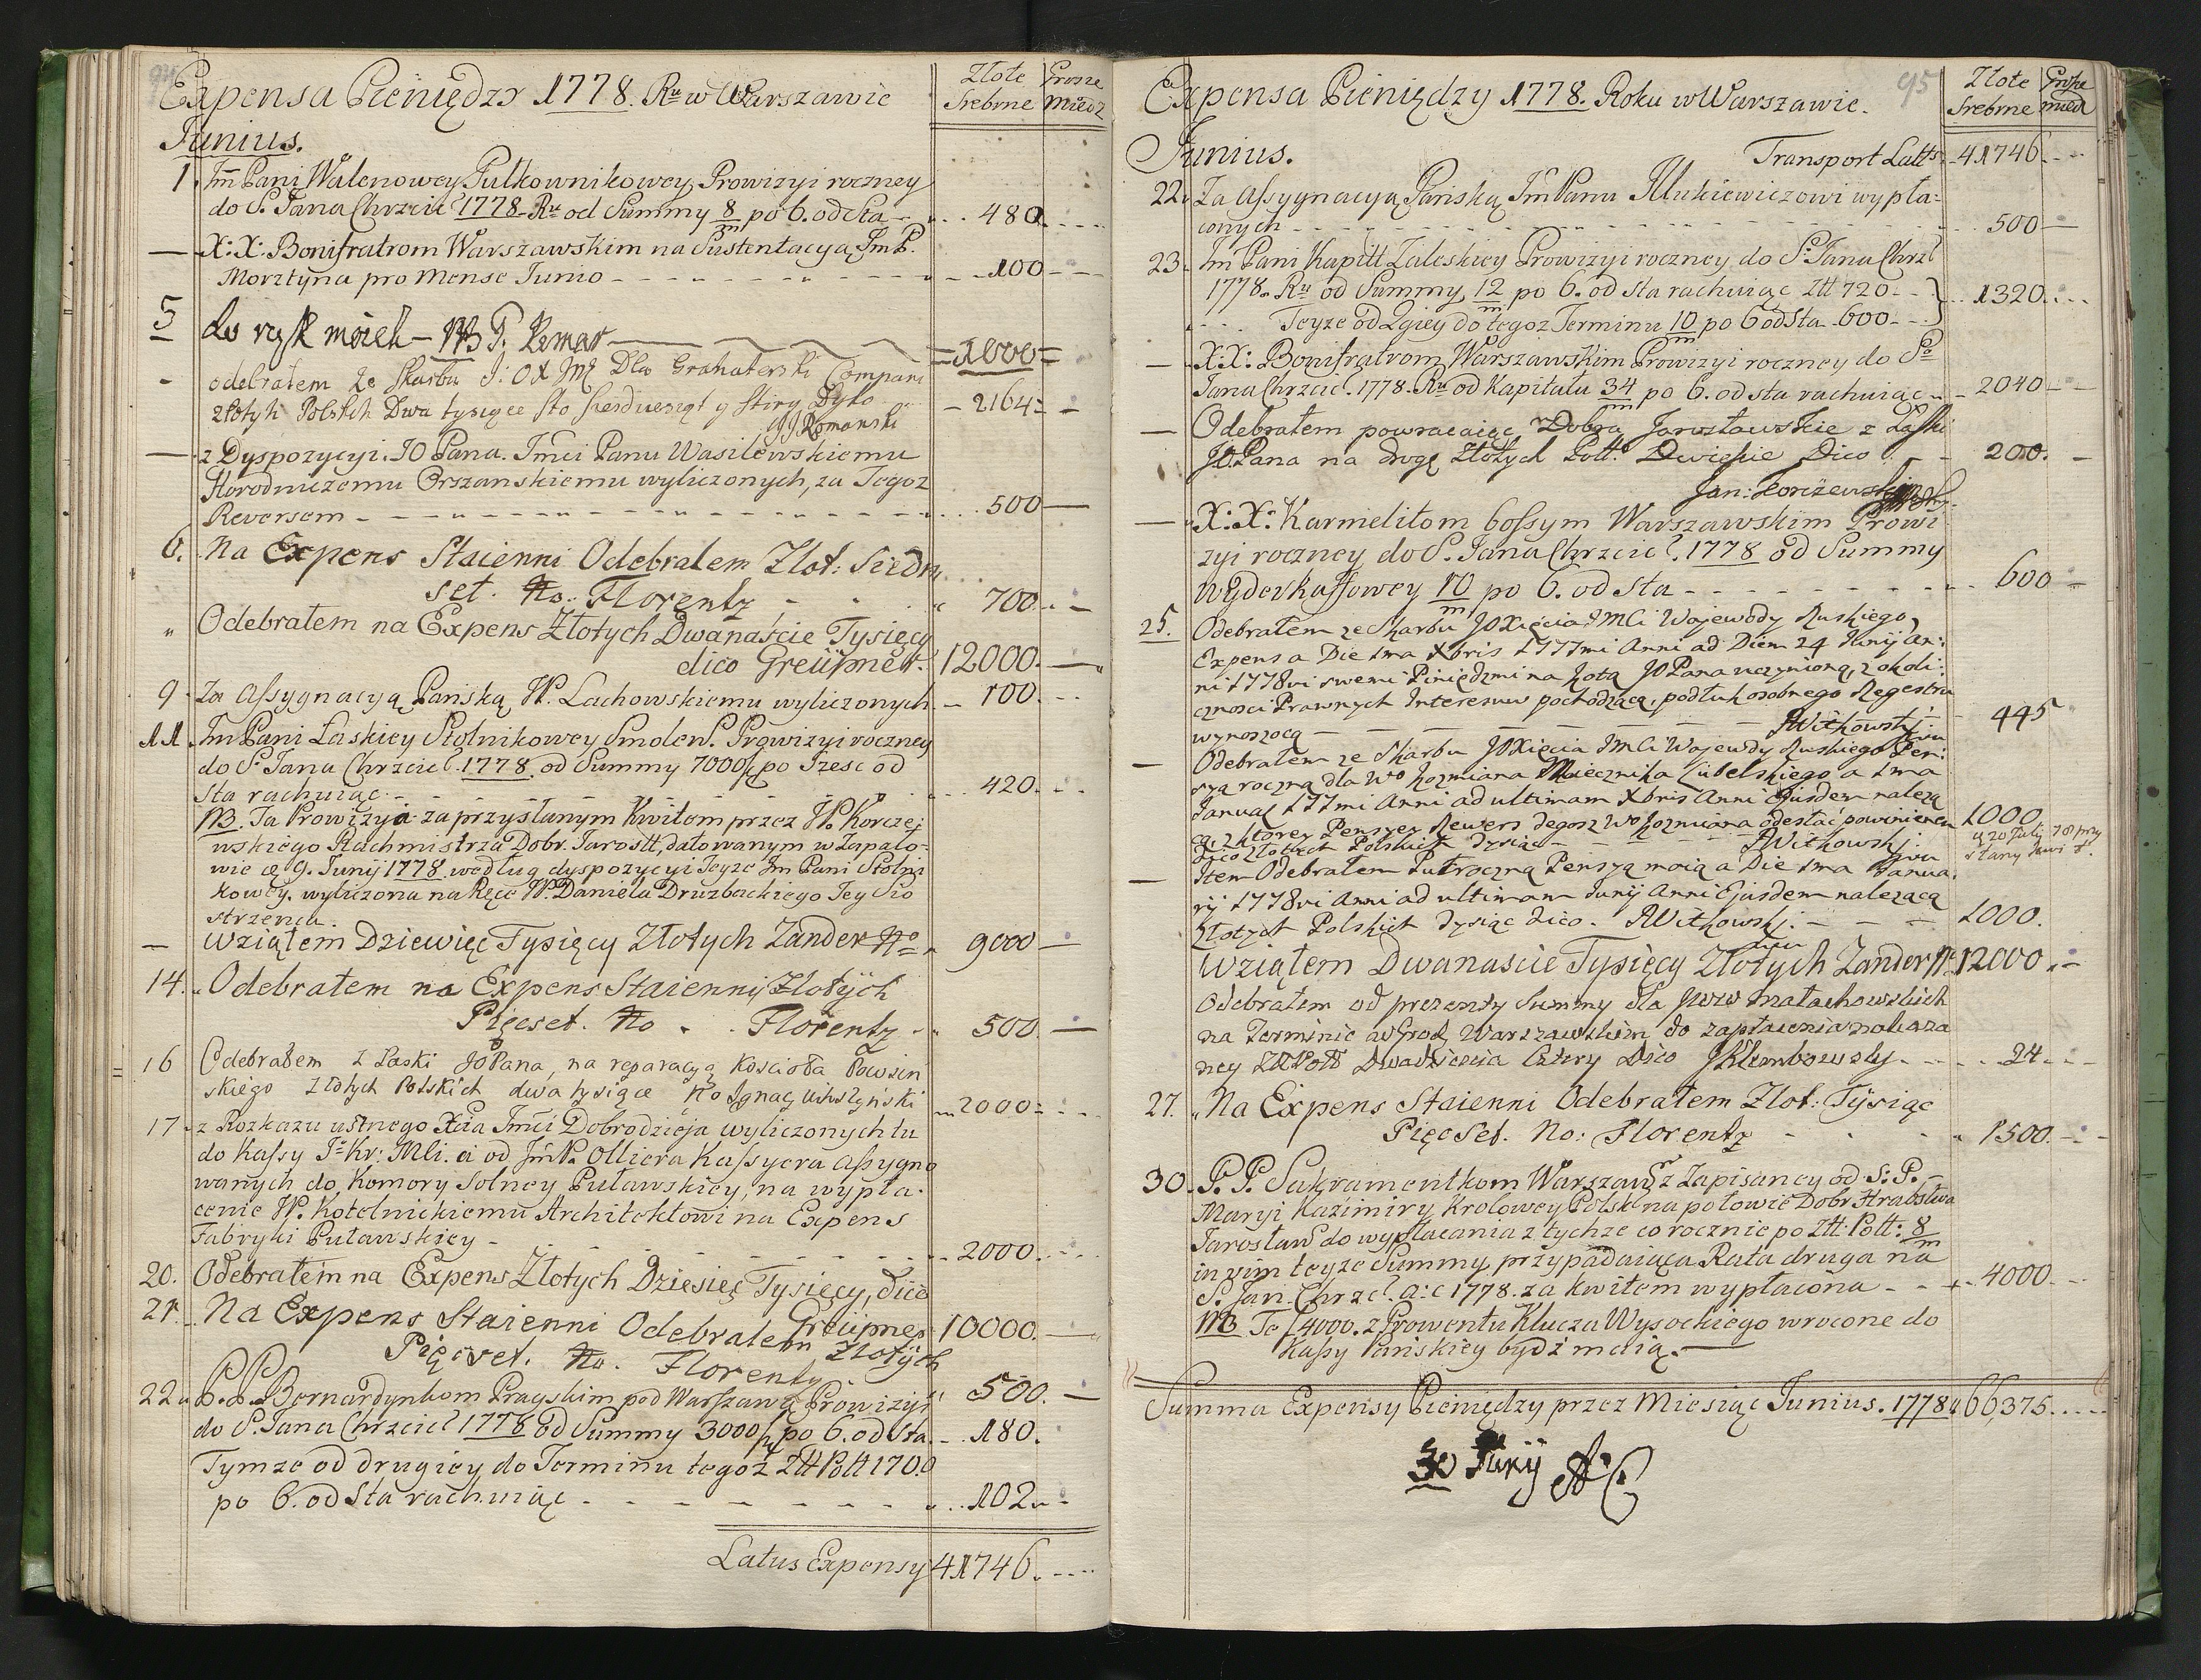 94
Expensa Pieniędzy 1778. Ru w Warszawie
Złote Grosze
Srebrne Miedz
Junius.
1. Jm Pani Walenowey Pułkownikowey Prowizyi roczney
do S. Jana Chrzciel 1778 Ru od Summy 8/m po 6. od Sta - 480.
— X: X: Bonifratrom Warszawskim na Sustentacyą Jm P.
Morztyna pro Mense Junio - - - 100
5 do rąk moich - 1000
- odebrałem ze skarbu J: O X Mć Dla
złotych Polskich Dwa tysiące sto sześdziesiąt y sztiry Dyko - 2164
JJ Romanski
— z Dyspozycyi JO Pana Jmci Panu Wasilewskiemu
Horodniczemu Orszanskiemu wyliczonych, za Tegoz
Reversem - - - 500
6. Na Expens Staienni Odebrałem Złot: Siedm
set. No. Florentz - 700
" Odebrałem na Expens Złotych Dwanaście Tysięcy
dico Greüpner. 12000.
9 Za Assygnacyą Pańską W. Lachowskiemu wyliczonych - 100
11. Jm Pani Łaskiey Stolnikowey Smolens. Prowizyi roczney
do S. Jana Chrzciel. 1778. od Summy 7000 po szesc od
sta rachuiąc - - - 420.
NB. Ta Prowizya za przysłanym kwitem przez W. Korcze:
wskiego Rachmistrza Dobr. Jarosłt, datowanym w Zapało-
wie d. 9. Junij 1778. według dyspozycyi Teyze Jm Pani Stolni
kowey. wyliczona na Ręce W. Daniela Druzbackiego Jey Sio
strzenca.
— Wziąłem Dziewięc Tysięcy Złotych Zander No 9000
14. Odebrałem na Expens Staienni Złotych
Pięcset. No. Florentz. 500
16 Odebrałem z Łaski JO Pana, na reparacyą Koscioła Powsin
skiego Złotych Polskich dwa tysiące No Ignacy - 2000
17 z Rozkazu ustnego Xcia Jmci Dobrodzieja wyliczonych tu
do Kassy J. Kr: Mci. a od Jm P. Olliera Kassyera assygno
wanych do Komory Solney Puławskiey, na wypła-
cenie W. Kotelnickiemu Architektowi na Expens
Fabryki Puławskiey - - - 2000.
20. Odebrałem na Expens Złotych Dziesięc Tysięcy, dico
Greüpner 10000.
21. Na Expens Staienni Odebrałem Złotych
Pięcset. No. Florentz 500.
22. P. P. Bernardynkom Pragskim pod Warszawą Prowizyi
do S. Jana Chrzciel 1778 od Summy 3000 po 6. od Sta. - 180.
Tymze od drugiey do Terminu tegoz Złł Poll 1700
po 6. od Sta rachuiąc - - - 102
Latus Expensy 41746.
95
Expensa Pieniędzy 1778. Roku w Warszawie.
Złote Grosze
Srebrne mied
Junius. Transport Latts 41746
22. Za Assygnacyą Pańską Jm Panu Mukiewiczowi wypła:
conych - - - 500
23. Jm Pani Kapitt Zaleskiey Prowizyi roczney do S. Jana Chrzl
1778. Ru od Summy 12/m po 6. od sta rachuiąc Złł 720 - -
Teyze od 2giey do tegoz Terminu 10/m po 6 od Sta 600 - - 1320.
— X: X: Bonifratrom Warszawskim Prowizyi roczney do S.
Jana Chrzciel. 1778. Ru od Kapitału 34/m po 6. od sta rachuiąc 2040
— Odebrałem powracaiąc w Dobra Jarosławskie z Łaski
JO. Pana na drogę złotych Poll. Dwiescie Dico - 200.
— X: X: Karmelitom bossym Warszawskim Prowi
zyi roczney do S. Jana Chrzciel. 1778 od Summy
Wyderkaffowey 10/m po 6. od sta - - - 600
25. Odebrałem ze Skarbu JO Xięcia JMCi Wojewody Ruskiego,
Expensa Die 1ma Xbris 1777mi Anni ad Diem 24 Junij An:
ni 1778vi swemi Pieniędzmi na potą JO Pana uczynioną, z okoli:
cznosci Prawnych Interesuw pochodzącą, podług osobnego Regestru
wynoszącą - - - AWitkowski 445
— Odebrałem ze Skarbu JO Xięcia JMCi Wojewody Ruskiego Pen:
syą roczną dla Wo Kozmiana Miecznika Lubelskiego a 1ma
Januar 1777mi Anni ad ultimam Xbris Anni Ejusdem należą
cą, z ktorey Pensyey Rewers Jegosz Wo Kozmiana odesłać powinienem
Dico złotych Polskich Tysiąc - - - AWitkowski: 1000.
— Item Odebrałem Pułroczną Pensyą moią a Die 1ma Janua:
rij 1778vi Anni ad ultimam Junij Anni Ejusdem należącą
Złotych Polskich Tysiąc Dico. AWitkowski: - - - 1000.
Wziąłem Dwanascie Tysięcy Złotych Zander 12000
Odebrałem od prezenty Summy dla JWW Małachowskich
na Terminie w Grod Warszawskim do zapłacenia nakaza
ney Złł Poll Dwadziescia Cztery Dico - 24
27. Na Expens Staienni Odebrałem Złot: Tysiąc
Pięcset. No: Florentz - 1500.
30. P. P. Sakramentkom Warszaws z Zapisaney od S: P.
Maryi Kazimiry Krolowey Polsk na połowie Dobr Hrabstwa
Jarosław do wypłacania z tychze co rocznie po Złł: Poll: 8/m
in vim teyze Summy przypadaiąca Rata druga na
S. Jan Chrzcl. a: c 1778. za kwitem wypłacona - - 4000
NB Te 4000. z Prowentu Klucza Wysockiego wrocone do
Kassy Pańskiey bydź maią.
Summa Expensy Pieniędzy przez Miesiąc Junius. 1778 66,375.
30 Junij AC